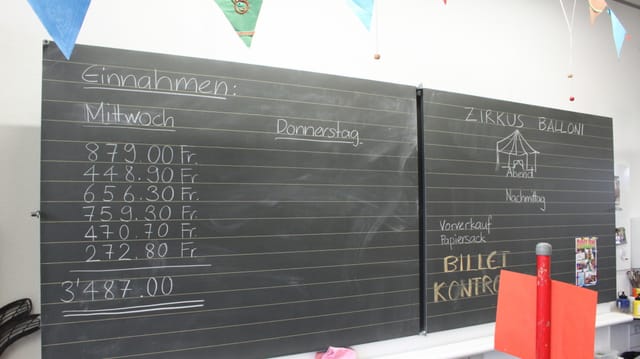 Einnahmen:
Mittwoch
879.00 Fr.
448.90 Fr.
656.30 Fr.
759.30 Fr.
470.70 Fr.
272.80 Fr.
3'487.00
Donnerstag
ZIRKUS BALLONI
Abend
Nachmittag
Vorverkauf
Papiersack
BILLET